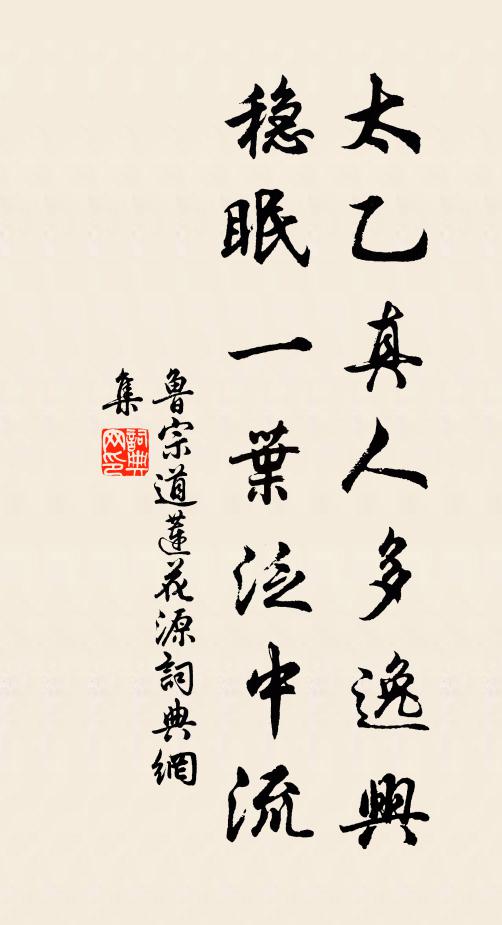 太乙真人多逸興
穏眠一葉泛中流
魯宗道蓮花源詞典網
集
詞典網印